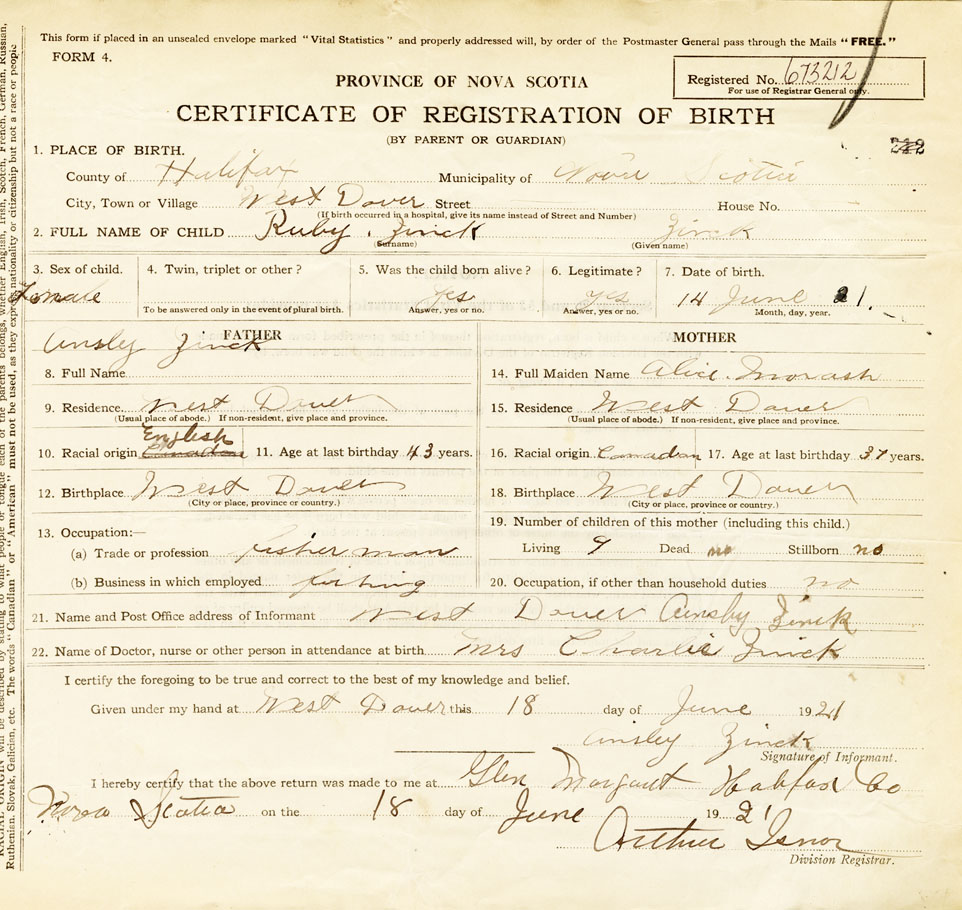 This form if placed in an unsealed envelope marked "Vital Statistics" and properly addressed will, by order of the Postmaster General pass through the Mails "FREE."
FORM 4.
Registered No. 673212
For use of Registrar General only.
PROVINCE OF NOVA SCOTIA
CERTIFICATE OF REGISTRATION OF BIRTH
(BY PARENT OR GUARDIAN)
1. PLACE OF BIRTH.
County of Halifax Municipality of Nova Scotia
City, Town or Village West Dover Street House No.
(If birth occurred in a hospital, give its name instead of Street and Number)
2. FULL NAME OF CHILD Ruby. Zinck Zinck
(Surname) (Given name)
3. Sex of child. 4. Twin, triplet or other? 5. Was the child born alive? 6. Legitimate? 7. Date of birth.
Female yes yes 14 June 21.
To be answered only in the event of plural birth. Answer, yes or no. Answer, yes or no. Month, day, year.
FATHER MOTHER
Ainsly Zinck
8. Full Name 14. Full Maiden Name Alice Morash
9. Residence West Dover 15. Residence West Dover
(Usual place of abode.) If non-resident, give place and province. (Usual place of abode.) If non-resident, give place and province.
English
10. Racial origin Canadian 11. Age at last birthday 43 years. 16. Racial origin Canadian 17. Age at last birthday 37 years.
12. Birthplace West Dover 18. Birthplace West Dover
(City or place, province or country.) (City or place, province or country.)
13. Occupation:— 19. Number of children of this mother (including this child.)
(a) Trade or profession fisher man Living 9 Dead no Stillborn no
(b) Business in which employed fishing 20. Occupation, if other than household duties no
21. Name and Post Office address of Informant West Dover Ainsby Zinck
22. Name of Doctor, nurse or other person in attendance at birth Mrs Charlie Zinck
I certify the foregoing to be true and correct to the best of my knowledge and belief.
Given under my hand at West Dover this 18 day of June 1921
Ainsley Zinck
Signature of Informant.
I hereby certify that the above return was made to me at Glen Margaret Halifax Co
Nova Scotia on the 18 day of June 1921
Arthur Isnor
Division Registrar.
RACIAL ORIGIN will be described by stating to what people or tongue each of the parents belongs, whether English, Irish, Scotch, French, German, Russian,
Ruthenian, Slovak, Galician, etc. The words "Canadian" or "American" must not be used, as they express nationality or citizenship but not a race or people